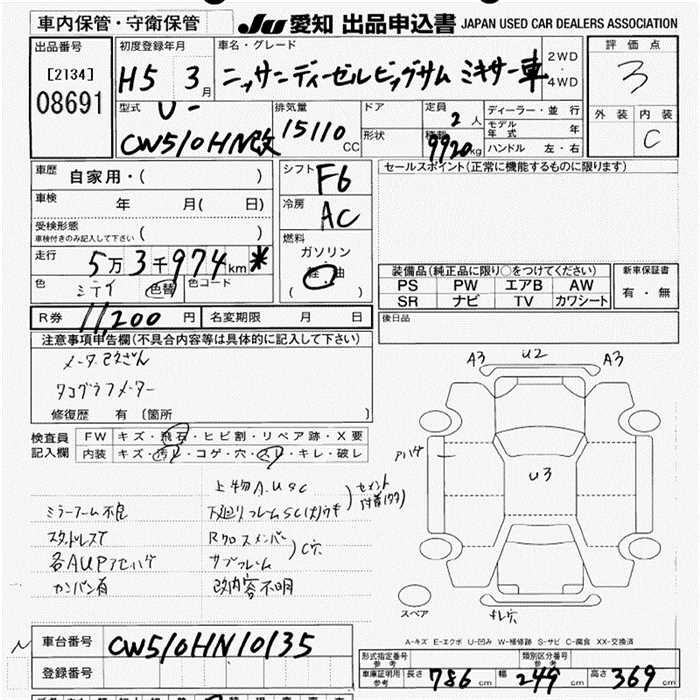 車内保管・守衛保管
JU 愛知 出品申込書 JAPAN USED CAR DEALERS ASSOCIATION
出品番号
[2134]
08691
初度登録年月
H5 3月
車名・グレード
ニッサンディーゼルビッグサム ミキサー車
2WD
・
4WD
評価点
3
外装 内装
C
型式
U-
CW510HN改
排気量
15110 CC
ドア
形状
定員
2人
積載
9920kg
ディーラー・並行
モデル年式 年
ハンドル 左・右
車歴
自家用・( )
車検
年 月( 日)
受検形態
車検付きのみ記入して下さい ( )
走行
5万3千974km *
色 色替 色コード
シフト
F6
冷房
AC
燃料
ガソリン
軽・油
( )
セールスポイント(正常に機能するものに限ります)
装備品(純正品に限り○をつけてください)
PS PW エアB AW
SR ナビ TV カワシート
新車保証書
有・無
R券 11,200円 名変期限 月 日
後日品
注意事項申告欄(不具合内容等は具体的に記入して下さい)
メーター改ざん
タコグラフメーター
修復歴 有 [箇所 ]
検査員
記入欄
FW キズ・飛石・ヒビ割・リペア跡・X要
内装 キズ・汚レ・コゲ・穴・スレ・キレ・破レ
上物A.USC
ミラーアーム不良 下廻りフレームSC
スタッドレスT Rクロスメンバー
各AUPアセハゲ サブフレーム
C穴
カンバン有 改内容不明
A3 U2 A3
アハゲ
U3
スペア
A-キズ E-エクボ U-凹み W-補修跡 S-サビ C-腐食 XX-交換済
車台番号 CW510HN10135
登録番号
形式指定番号 参考
類別区分番号 参考
車庫証明用 参考 長さ 786cm 幅 249cm 高さ 369cm